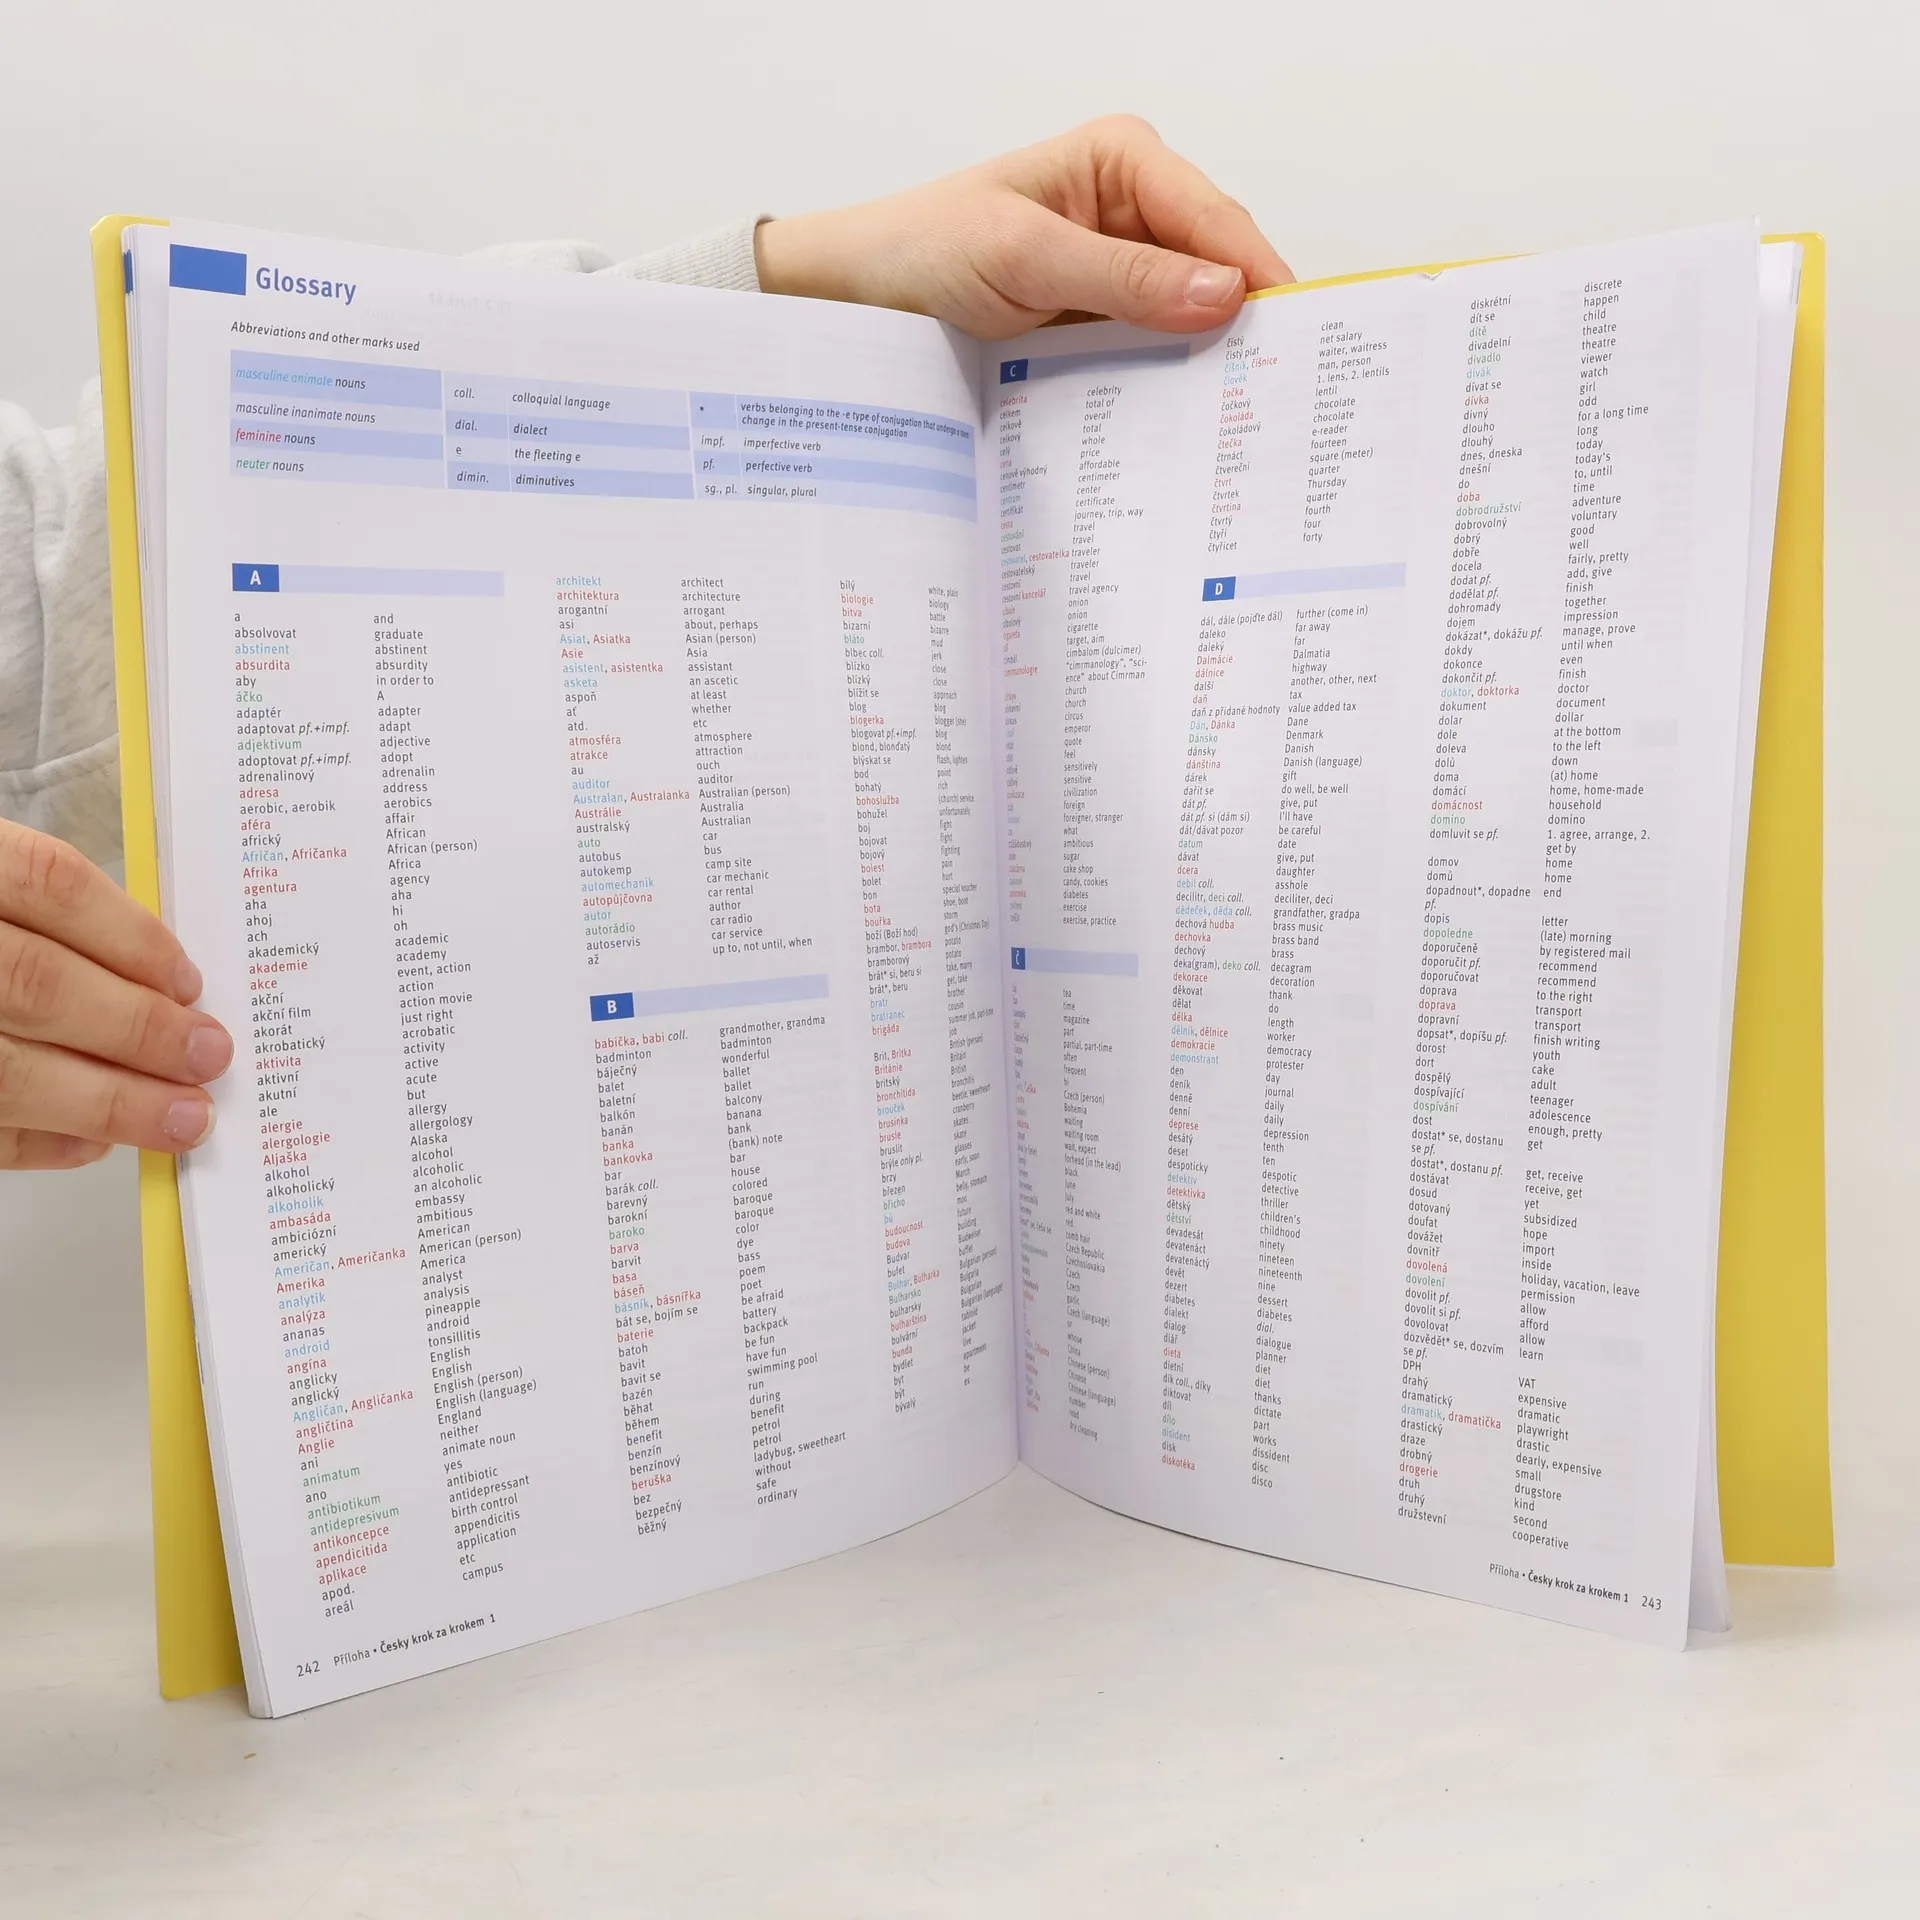 Glossary
Abbreviations and other marks used
masculine animate nouns
masculine inanimate nouns
feminine nouns
neuter nouns
coll. colloquial language
dial. dialect
e the fleeting e
dimin. diminutives
* verbs belonging to the -e type of conjugation that undergo a stem
change in the present-tense conjugation
impf. imperfective verb
pf. perfective verb
sg., pl. singular, plural
A
a and
absolvovat graduate
abstinent abstinent
absurdita absurdity
aby in order to
áčko A
adaptér adapter
adaptovat pf.+impf. adapt
adjektivum adjective
adoptovat pf.+impf. adopt
adrenalinový adrenalin
adresa address
aerobic, aerobik aerobics
aféra affair
africký African
Afričan, Afričanka African (person)
Afrika Africa
agentura agency
aha aha
ahoj hi
ach oh
akademický academic
akademie academy
akce event, action
akční action
akční film action movie
akorát just right
akrobatický acrobatic
aktivita activity
aktivní active
akutní acute
ale but
alergie allergy
alergologie allergology
Aljaška Alaska
alkohol alcohol
alkoholický alcoholic
alkoholik an alcoholic
ambasáda embassy
ambiciózní ambitious
americký American
Američan, Američanka American (person)
Amerika America
analytik analyst
analýza analysis
ananas pineapple
android android
angína tonsillitis
anglicky English
anglický English
Angličan, Angličanka English (person)
angličtina English (language)
Anglie England
ani neither
animatum animate noun
ano yes
antibiotikum antibiotic
antidepresivum antidepressant
antikoncepce birth control
apendicitida appendicitis
aplikace application
apod. etc
areál campus
architekt architect
architektura architecture
arogantní arrogant
asi about, perhaps
Asiat, Asiatka Asian (person)
Asie Asia
asistent, asistentka assistant
asketa an ascetic
aspoň at least
ať whether
atd. etc
atmosféra atmosphere
atrakce attraction
au ouch
auditor auditor
Australan, Australanka Australian (person)
Austrálie Australia
australský Australian
auto car
autobus bus
autokemp camp site
automechanik car mechanic
autopůjčovna car rental
autor author
autorádio car radio
autoservis car service
až up to, not until, when
B
babička, babi coll. grandmother, grandma
badminton badminton
báječný wonderful
balet ballet
baletní ballet
balkón balcony
banán banana
banka bank
bankovka (bank) note
bar bar
barák coll. house
barevný colored
barokní baroque
baroko baroque
barva color
barvit dye
basa bass
báseň poem
básník, básnířka poet
bát se, bojím se be afraid
baterie battery
batoh backpack
bavit be fun
bavit se have fun
bazén swimming pool
běhat run
během during
benefit benefit
benzín petrol
benzínový petrol
beruška ladybug, sweetheart
bez without
bezpečný safe
běžný ordinary
bílý white, plain
biologie biology
bitva battle
bizarní bizarre
bláto mud
blbec coll. jerk
blízko close
blízký close
blížit se approach
blog blog
blogerka blogger (she)
blogovat pf.+impf. blog
blond, blonďatý blond
blýskat se flash, lighten
bod point
bohatý rich
bohoslužba (church) service
bohužel unfortunately
boj fight
bojovat fight
bojový fighting
bolest pain
bolet hurt
bon special voucher
bota shoe, boot
bouřka storm
boží (Boží hod) god's (Christmas Day)
brambor, brambora potato
bramborový potato
brát* si, beru si take, marry
brát*, beru get, take
bratr brother
bratranec cousin
brigáda summer job, part-time
job
Brit, Britka British (person)
Británie Britain
britský British
bronchitida bronchitis
brouček beetle, sweetheart
brusinka cranberry
brusle skates
bruslit skate
brýle only pl. glasses
brzy early, soon
březen March
břicho belly, stomach
bů moo
budoucnost future
budova building
Budvar Budweiser
bufet buffet
Bulhar, Bulharka Bulgarian (person)
Bulharsko Bulgaria
bulharsky Bulgarian
bulharština Bulgarian (language)
bulvární tabloid
bunda jacket
bydlet live
byt apartment
být be
bývalý ex
242 Příloha • Česky krok za krokem 1
C
celebrita celebrity
celkem total of
celkově overall
celkový total
celý whole
cena price
cenově výhodný affordable
centimetr centimeter
centrum center
certifikát certificate
cesta journey, trip, way
cestování travel
cestovat travel
cestovatel, cestovatelka traveler
cestovatelský traveler
cestovní travel
cestovní kancelář travel agency
cibule onion
cibulový onion
cigareta cigarette
cíl target, aim
cimbál cimbalom (dulcimer)
cimrmanologie "cimrmanology", "sci-
ence" about Cimrman
církev church
church
circus
emperor
quote
feel
sensitively
sensitive
civilizace civilization
foreign
foreigner, stranger
co what
ctižádostivý ambitious
sugar
cake shop
candy, cookies
diabetes
exercise
exercise, practice
Č
tea
time
magazine
part
partial, part-time
often
frequent
hi
Czech (person)
Bohemia
waiting
waiting room
wait, expect
forhead (in the lead)
black
June
July
red and white
red
comb hair
Czech Republic
Czechoslovakia
Czech
Czech
garlic
Czech (language)
or
whose
China
Chinese (person)
Chinese
Chinese (language)
number
read
dry cleaning
čistý clean
čistý plat net salary
číšník, číšnice waiter, waitress
člověk man, person
čočka 1. lens, 2. lentils
čočkový lentil
čokoláda chocolate
čokoládový chocolate
čtečka e-reader
čtrnáct fourteen
čtvereční square (meter)
čtvrt quarter
čtvrtek Thursday
čtvrtina quarter
čtvrtý fourth
čtyři four
čtyřicet forty
D
dál, dále (pojďte dál) further (come in)
daleko far away
daleký far
Dalmácie Dalmatia
dálnice highway
další another, other, next
daň tax
daň z přidané hodnoty value added tax
Dán, Dánka Dane
Dánsko Denmark
dánsky Danish
dánština Danish (language)
dárek gift
dařit se do well, be well
dát pf. give, put
dát pf. si (dám si) I'll have
dát/dávat pozor be careful
datum date
dávat give, put
dcera daughter
debil coll. asshole
decilitr, deci coll. deciliter, deci
dědeček, děda coll. grandfather, gradpa
dechová hudba brass music
dechovka brass band
dechový brass
deka(gram), deko coll. decagram
dekorace decoration
děkovat thank
dělat do
délka length
dělník, dělnice worker
demokracie democracy
demonstrant protester
den day
deník journal
denně daily
denní daily
deprese depression
desátý tenth
deset ten
despoticky despotic
detektiv detective
detektivka thriller
dětský children's
dětství childhood
devadesát ninety
devatenáct nineteen
devatenáctý nineteenth
devět nine
dezert dessert
diabetes diabetes
dialekt dial.
dialog dialogue
diář planner
dieta diet
dietní diet
dík coll., díky thanks
diktovat dictate
díl part
dílo works
disident dissident
disk disc
diskotéka disco
diskrétní discrete
dít se happen
dítě child
divadelní theatre
divadlo theatre
divák viewer
dívat se watch
dívka girl
divný odd
dlouho for a long time
dlouhý long
dnes, dneska today
dnešní today's
do to, until
doba time
dobrodružství adventure
dobrovolný voluntary
dobrý good
dobře well
docela fairly, pretty
dodat pf. add, give
dodělat pf. finish
dohromady together
dojem impression
dokázat*, dokážu pf. manage, prove
dokdy until when
dokonce even
dokončit pf. finish
doktor, doktorka doctor
dokument document
dolar dollar
dole at the bottom
doleva to the left
dolů down
doma (at) home
domácí home, home-made
domácnost household
domino domino
domluvit se pf. 1. agree, arrange, 2.
get by
domov home
domů home
dopadnout*, dopadne end
pf.
dopis letter
dopoledne (late) morning
doporučeně by registered mail
doporučit pf. recommend
doporučovat recommend
doprava to the right
doprava transport
dopravní transport
dopsat*, dopíšu pf. finish writing
dorost youth
dort cake
dospělý adult
dospívající teenager
dospívání adolescence
dost enough, pretty
dostat* se, dostanu get
se pf.
dostat*, dostanu pf. get, receive
dostávat receive, get
dosud yet
dotovaný subsidized
doufat hope
dovážet import
dovnitř inside
dovolená holiday, vacation, leave
dovolení permission
dovolit pf. allow
dovolit si pf. afford
dovolovat allow
dozvědět* se, dozvím learn
se pf.
DPH VAT
drahý expensive
dramatický dramatic
dramatik, dramatička playwright
drastický drastic
draze dearly, expensive
drobný small
drogerie drugstore
druh kind
druhý second
družstevní cooperative
Příloha • Česky krok za krokem 1 243